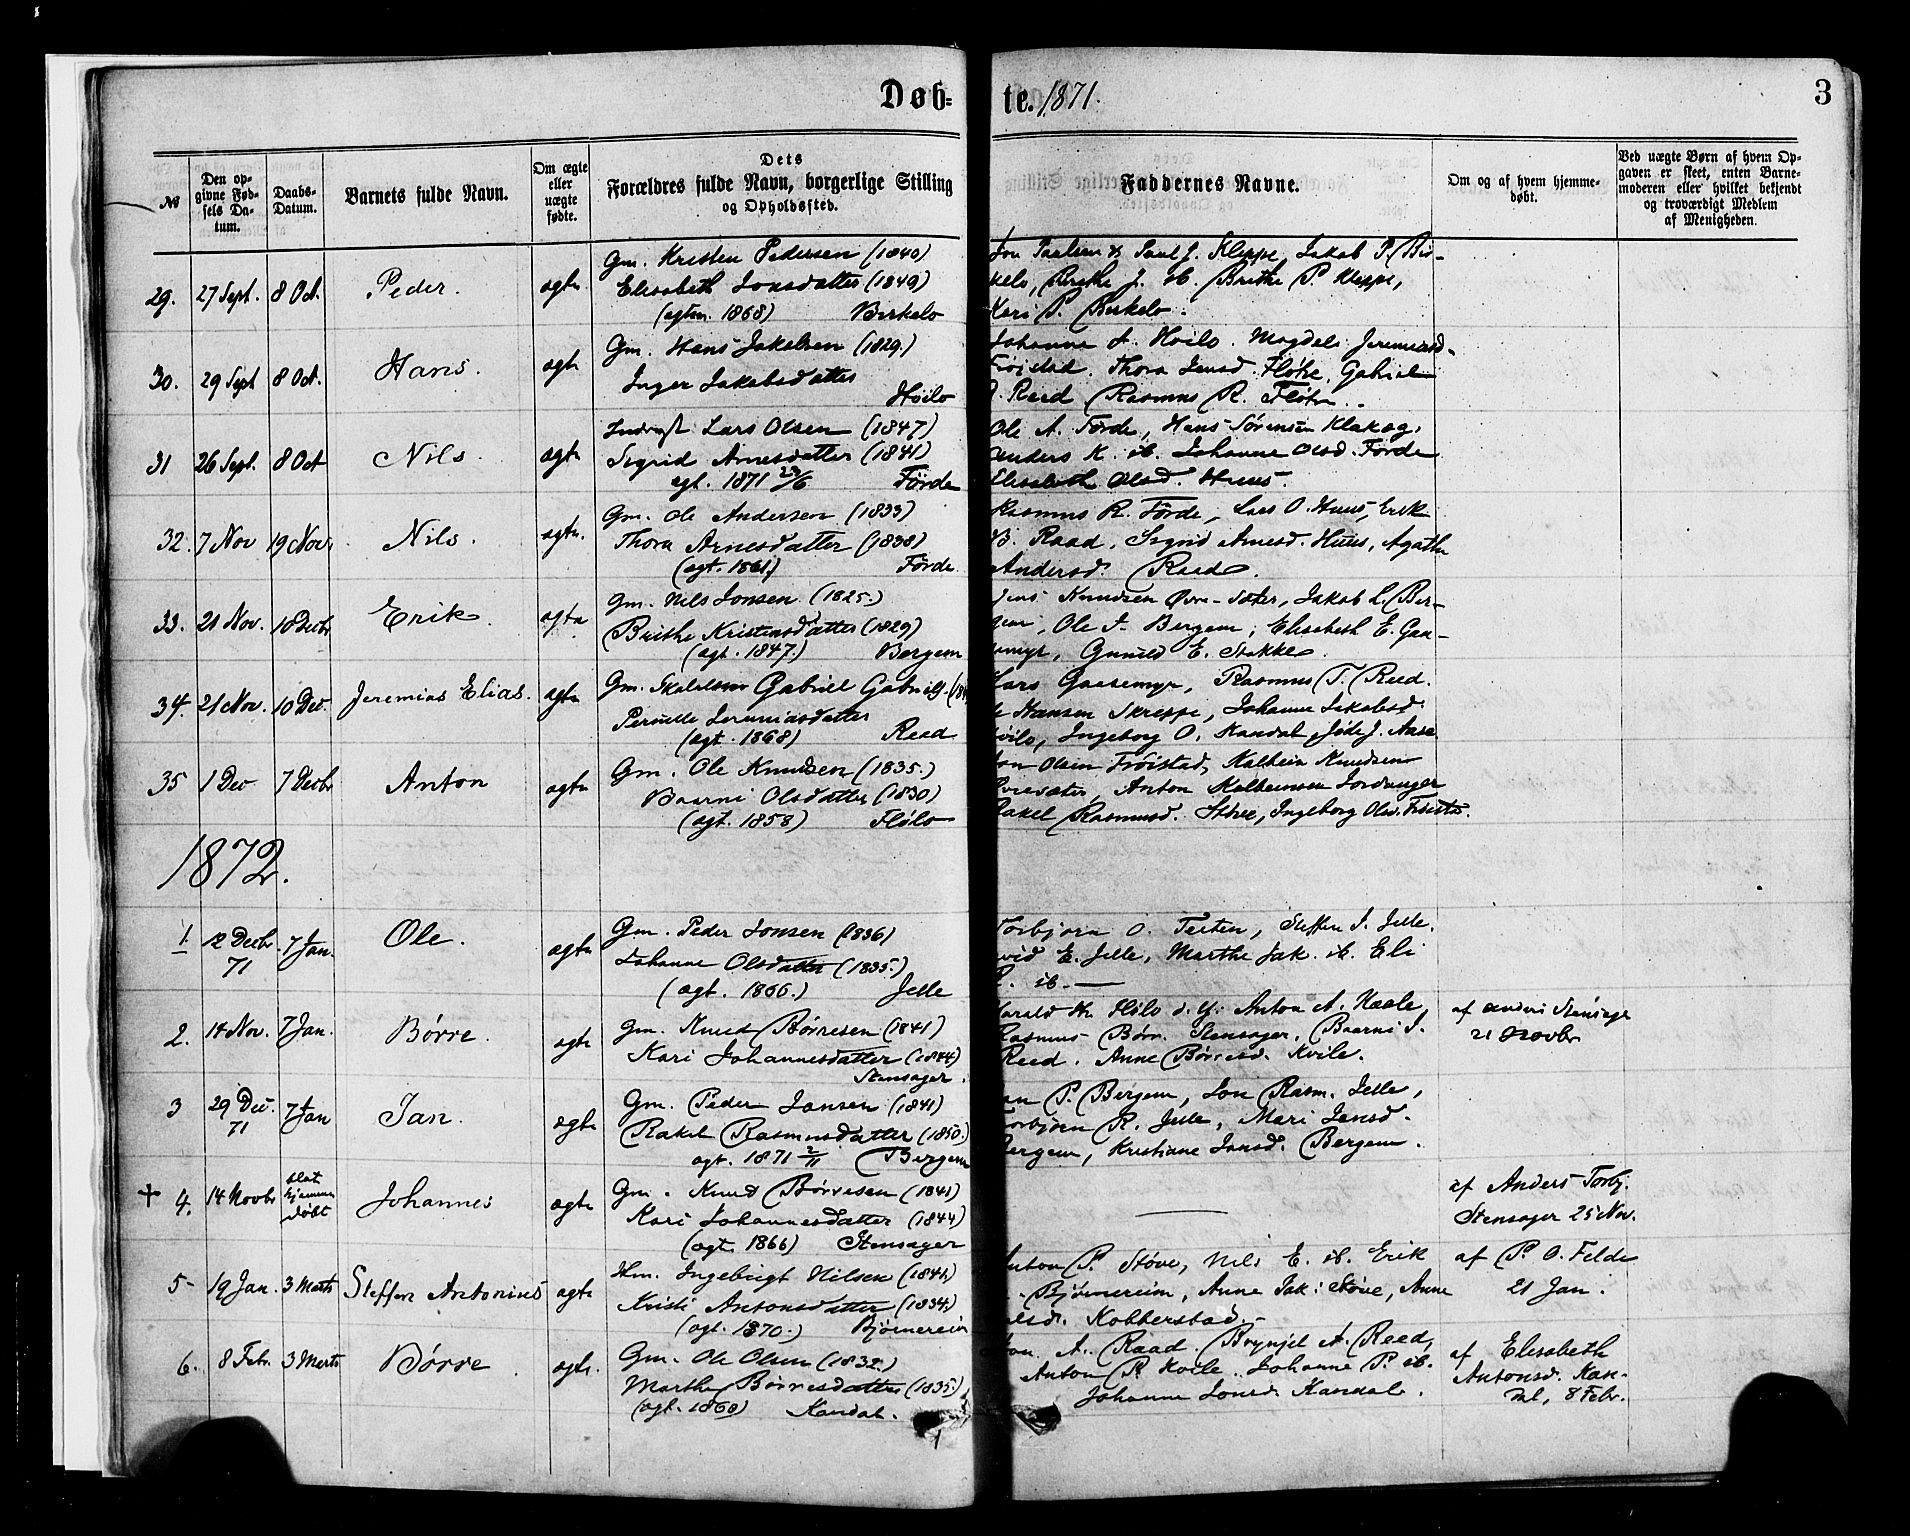 Døb= te. 1871.
3
№
Den op-
givne Fød-
sels Da-
tum.
Daabs-
Datum.
Barnets fulde Navn.
Om ægte
eller
uægte
fødte.
Dets
Forældres fulde Navn, borgerlige Stilling
og Opholdssted.
Faddernes Navne.
Om og af hvem hjemme-
døbt.
Ved uægte Børn af hvem Op-
gaven er skeet, enten Barne-
moderen eller hvilket bekjendt
og troværdigt Medlem
af Menigheden.
29. 27 Sept. 8 Oct. Peder. ægte
Gm. Kristen Pedersen (1840)
Elisabeth Jonsdatter (1849)
(ægt. 1868) Birkelo
Jon Paulsen & Paul J. Kleppe, Jakob P. Bir-
kelo, Brithe J. ib. Brithe P. Kleppe,
Kari P. Birkelo.
30. 29 Sept 8 Oct. Hans. ægte
Gm. Hans Jakobsen (1829.)
Inger Jakobsdatter
Høilo
Johanne A. Høilo. Magdele Jeremiasd.
Frøistad. Thora Jensd. Fløtre, Gabriel
Reed Rasmus R. Fløtre.
31 26 Sept. 8 Oct Nils. ægte
Inderst Lars Olsen (1847)
Sigrid Arnesdatter (1841)
ægt. 1871 29/6 Førde
Ole A. Førde, Hans Sørensen Klakeg,
Anders K. ib. Johanne Olsd. Førde
Elisabeth Olsd. Huus.
32. 7 Nov 19 Nov. Nils. ægte.
Gm. Ole Andersen (1833)
Thora Arnesdatter (1838)
(ægt. 1861) Førde.
Rasmus R. Førde, Lars O. Huus, Erik
B. Raad. Sigrid Arnesd. Huus, Agathe
Andersd. Reed.
33. 21 Nov. 10 Decbr Erik. ægte
Gm. Nils Jonsen (1825.)
Brithe Kristensdatter (1829)
(ægt. 1847.) Bergem
Jens Knudsen Øvre-Sæter, Jakob L. Ber-
gem, Ole J. Bergem, Elisabeth E. Gaa-
semyr, Gunild E. Stakke.
34. 21 Nov. 10 Dec. Jeremias Elias. ægte
Gm. Gabriel Gabriels.
Pernille Jeremiasdatter
(ægt. 1868) Reed
Lars Gaasemyr, Rasmus T. Reed.
Hansen Skreppe, Johanne Jakobsd.
Høilo, Ingeborg O. Kandal, J. Aase
35 1 Dec 7 Decbr Anton ægte
Gm. Ole Knudsen (1835.)
Baarni Olsdatter (1830)
(ægt. 1858) Fløilo
Jon Olsen Frøistad, Kolbein Knudsen
Øvresæter, Anton Kolbeinsen Jordanger
Rakel Rasmusd. Støve, Ingeborg Olsd. Frøistad.
1872.
1. 12 Decbr 71 7 Jan. Ole. ægte
Gm. Peder Jonsen (1836)
Johanne Olsdatter (1835.)
(ægt. 1866.) Jelle
Torbjørn O. Teiten, Steffen J. Jelle.
E. Jelle, Marthe Jak. ib. Eli
R. ib. —
2. 14 Nov. 7 Jan. Børre. ægte
Gm. Knud Børresen (1841)
Kari Johannesdatter (1844)
Stensager.
Harald Fløilo d. y. Anton A. Kvile
Rasmus Børr. Stensager, Baarni J.
Reed. Anne Børresd. Kvile.
af Anders Stensager
21 Novbr
3 29 Dec. 71 7 Jan Jan. ægte
Gm. Peder Jansen (1841)
Rakel Rasmusdatter (1850.)
ægt. 1871 2/11 Bergem
Jan P. Bergem, Jon Rasm. Jelle,
Torbjørn R. Jelle, Mari Jansd.
Bergem, Kristiane Jansd. Bergem.
+ 4. 14 Novbr blot hjemme døbt Johannes ægte
Gm. Knud Børresen (1841)
Kari Johannesdatter (1844)
(ægt. 1866) Stensager
—
af Anders Torbj.
Stensager 25 Nov.
5 19 Jan. 3 Marts Steffen Antonius ægte
Hm. Ingebrigt Nilsen (1841)
Kristi Antonsdatter (1834)
(ægt. 1870.) Bjørnereim
Anton P. Støve, Nils E. ib. Erik
Bjørnereim, Anne Jak: Støve, Anne
Kobberstad.
af P. O. Felde
21 Jan.
6. 8 Febr. 3 Marts Børre ægte.
Gm. Ole Olsen (1832.)
Marthe Børresdatter (1835.)
(ægt. 1860) Kandal.
Jon A. Raad. Brynjel A. Reed,
Anton R. Kvile, Johanne P. ib.
Johanne Jonsd. Kandal.
af Elisabeth
Antonsd. Kan-
dal, 8 Febr.